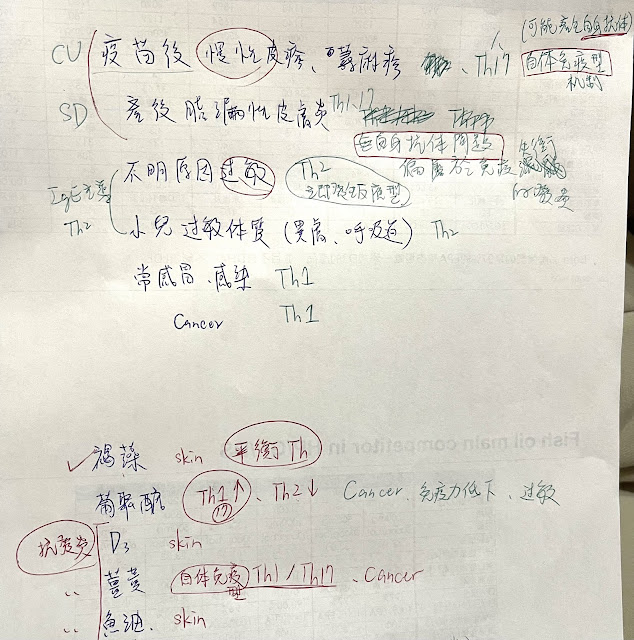 (可能產生自身抗体)
CU 疫苗後 慢性皮疹、蕁麻疹 、Th17 自体免疫型
机制
SD 產後脂漏性皮膚炎 Th1.17
無自身抗体問題
偏屬於免疫失衡
不明原因过敏 Th2
立即發反應型
IgE
Th2 小兒过敏体質 (異膚、呼吸道) Th2
常感冒、感染 Th1
Cancer Th1
Fish oil main competitor in
✓褐藻 skin 平衡Th
葡聚醣 Th1↑、Th2↓ Cancer、免疫力低下、过敏
17
抗發炎 D3 skin
〃 薑黃 自体免疫型 Th1/Th17、Cancer
〃 魚油、skin